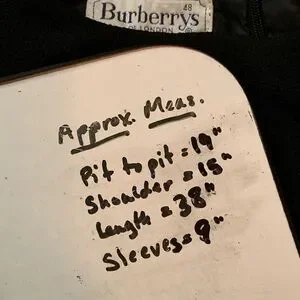 Burberrys
48
OF LONDON ®
Approx. Meas.
Pit to pit = 19"
Shoulder = 15"
Length = 38"
Sleeves = 9"